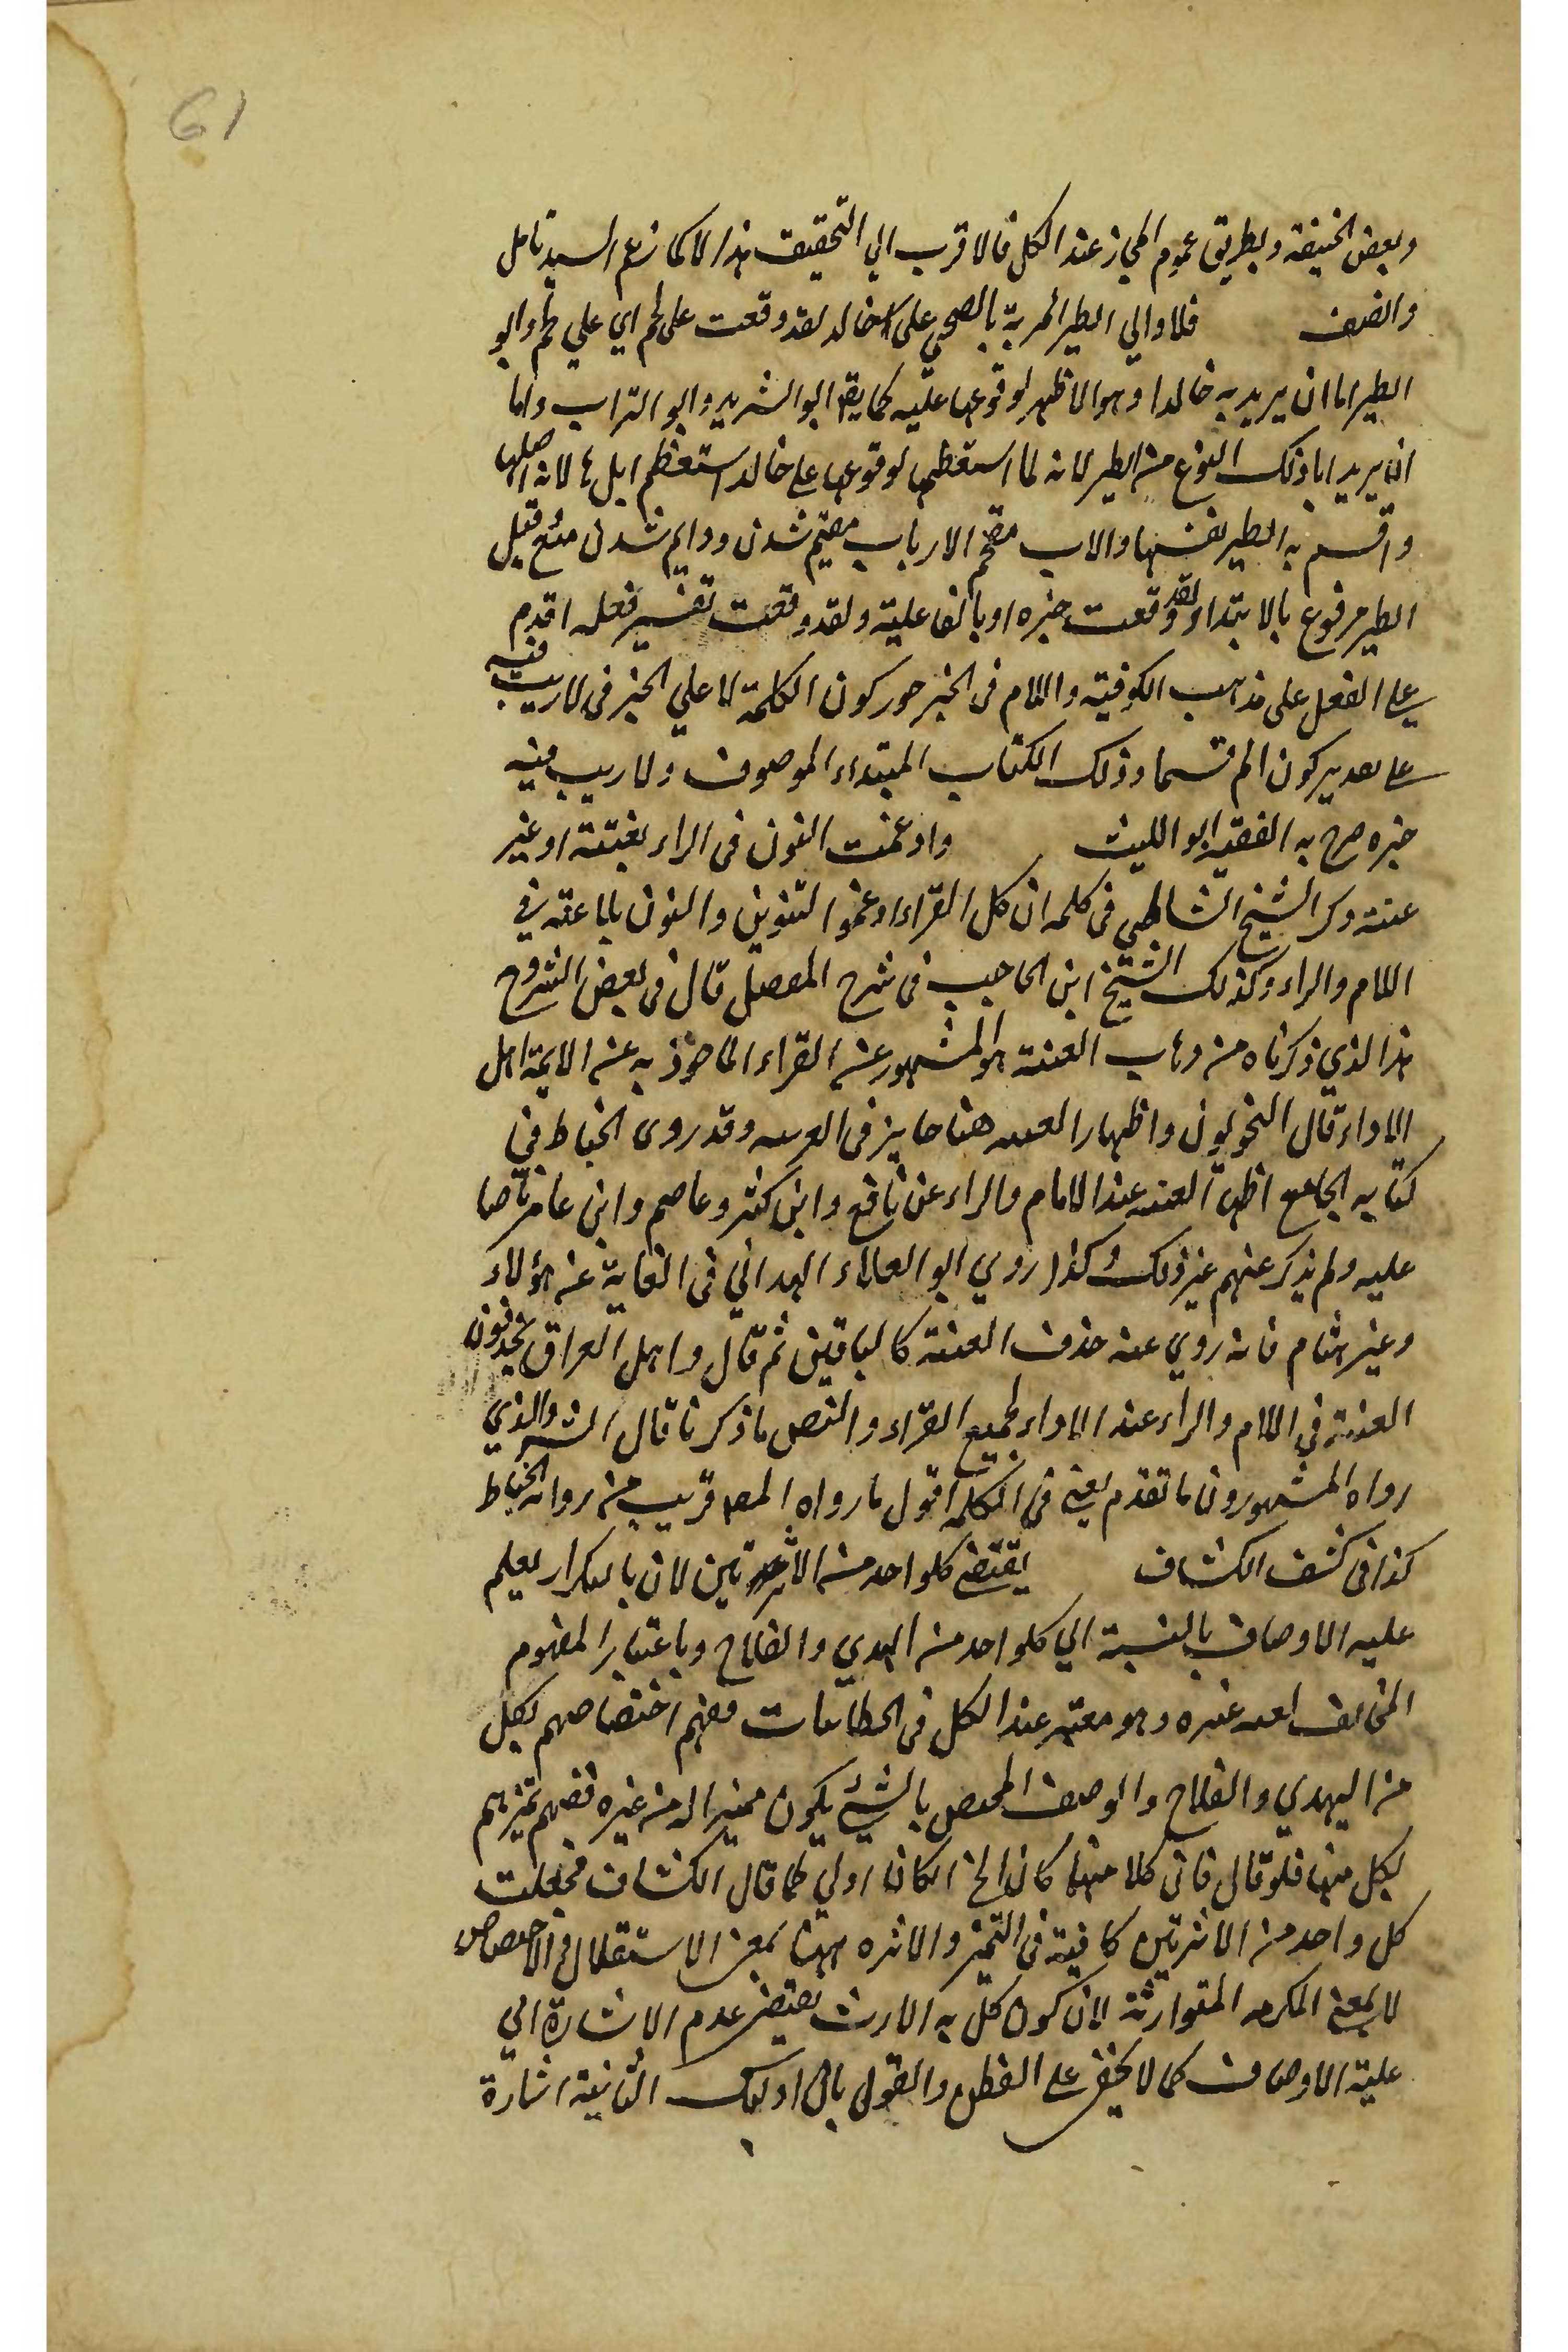 61
وبعض الحنيفة وبطريق عموم المجاز عند الكل فالاقرب الي التحقيق هذا لا كما زعم السيد تامل
والضف فلا وابي الطير المربة بالضحي على خالد لقد وقعت على لحم اي علي لحم وابو
الطير اما ان يريد به خالدا وهو الاظهر لوقوعها عليه كما يقال ابو الشريد وابو التراب واما
ان يريد ابا ذلك النوع من الطير لانه لما استعظمها لوقوعها على خالد استعظم ابل ها لانه اصلها
واقسم به الطير نفسها والاب مقحم الارباب مقيم شدن ودايم شدن منع قيل
الطير مرفوع بالابتداء ولقد وقعت خبره او بالفاعلية ولقد وقعت تفسير فعله اقدم
على الفعل على مذهب الكوفية واللام في الخبر جور كون الكلمة لا علي الخبر في لا ريب فيه
على تقدير كون الم قسما وذلك الكتاب المبتداء الموصوف ولا ريب فيه
خبره صرح به الفقيه ابو الليث وادغمت النون في الراء بغنة او غير
عنة وكر الشيخ الشاطبي في كلمه ان كل القراء ادغموا التنوين والنون بلا عنة في
اللام والراء وكذلك الشيخ ابن الحاجب في شرح المفصل قال في بعض الشروح
هذا الذي ذكرناه من ذهاب الغنة هو المشهور عن القراء الماخوذ به عن الايمة اهل
الاداء قال النحويون واظهار الغنه هنا جايز في العربيه وقد روى الخباط في
كتابه الجامع اظهار الغنه عند اللام والراء عن نافع وابن كثير وعاصم وابن عامر ناصا
عليه ولم يذكر عنهم غير ذلك وكذا روي ابو العلاء الهمداني في الغاية عن هؤلاء
وغير هشام فانه روي عنه حذف الغنة كالباقين ثم قال واهل العراق يحذفون
الغنة في اللام والراء عند الاداء لجميع القراء والنص ما ذكرنا قال الشر والذي
رواه المشهورون ما تقدم يعني في الكلمه اقول ما رواه المصـ قريب من رواية الخباط
كذا في كشف الكشاف يقتضي كلواحد من الاثرتين لان بالتكرار يعلم
عليه الاوصاف بالنسبة الي كلواحد من الهدي والفلاح وباعتبار المفهوم
المخالف لعد غيره وهو معتبر عند الكل في الخطابيات مفهم اختصاصهم بكل
من الهدي والفلاح والوصف المختص بالشيئ يكون مميزا له من غيره فيفهم تميزهم
بكل منها فلو قال فان كلا منها كان الخ لكان اولي كما قال الكشاف فجعلت
كل واحد من الاثرتين كافية في التميز والاثره ههنا بمعنى الاستقلال والاختصاص
لا بمعنى المكرمه المتوارثة لان كون كل به الارث يقتضى عدم الاشارة الي
علية الاوصاف كما لا يخفى على الفطن والقول بان اولئك الثانية اشارة